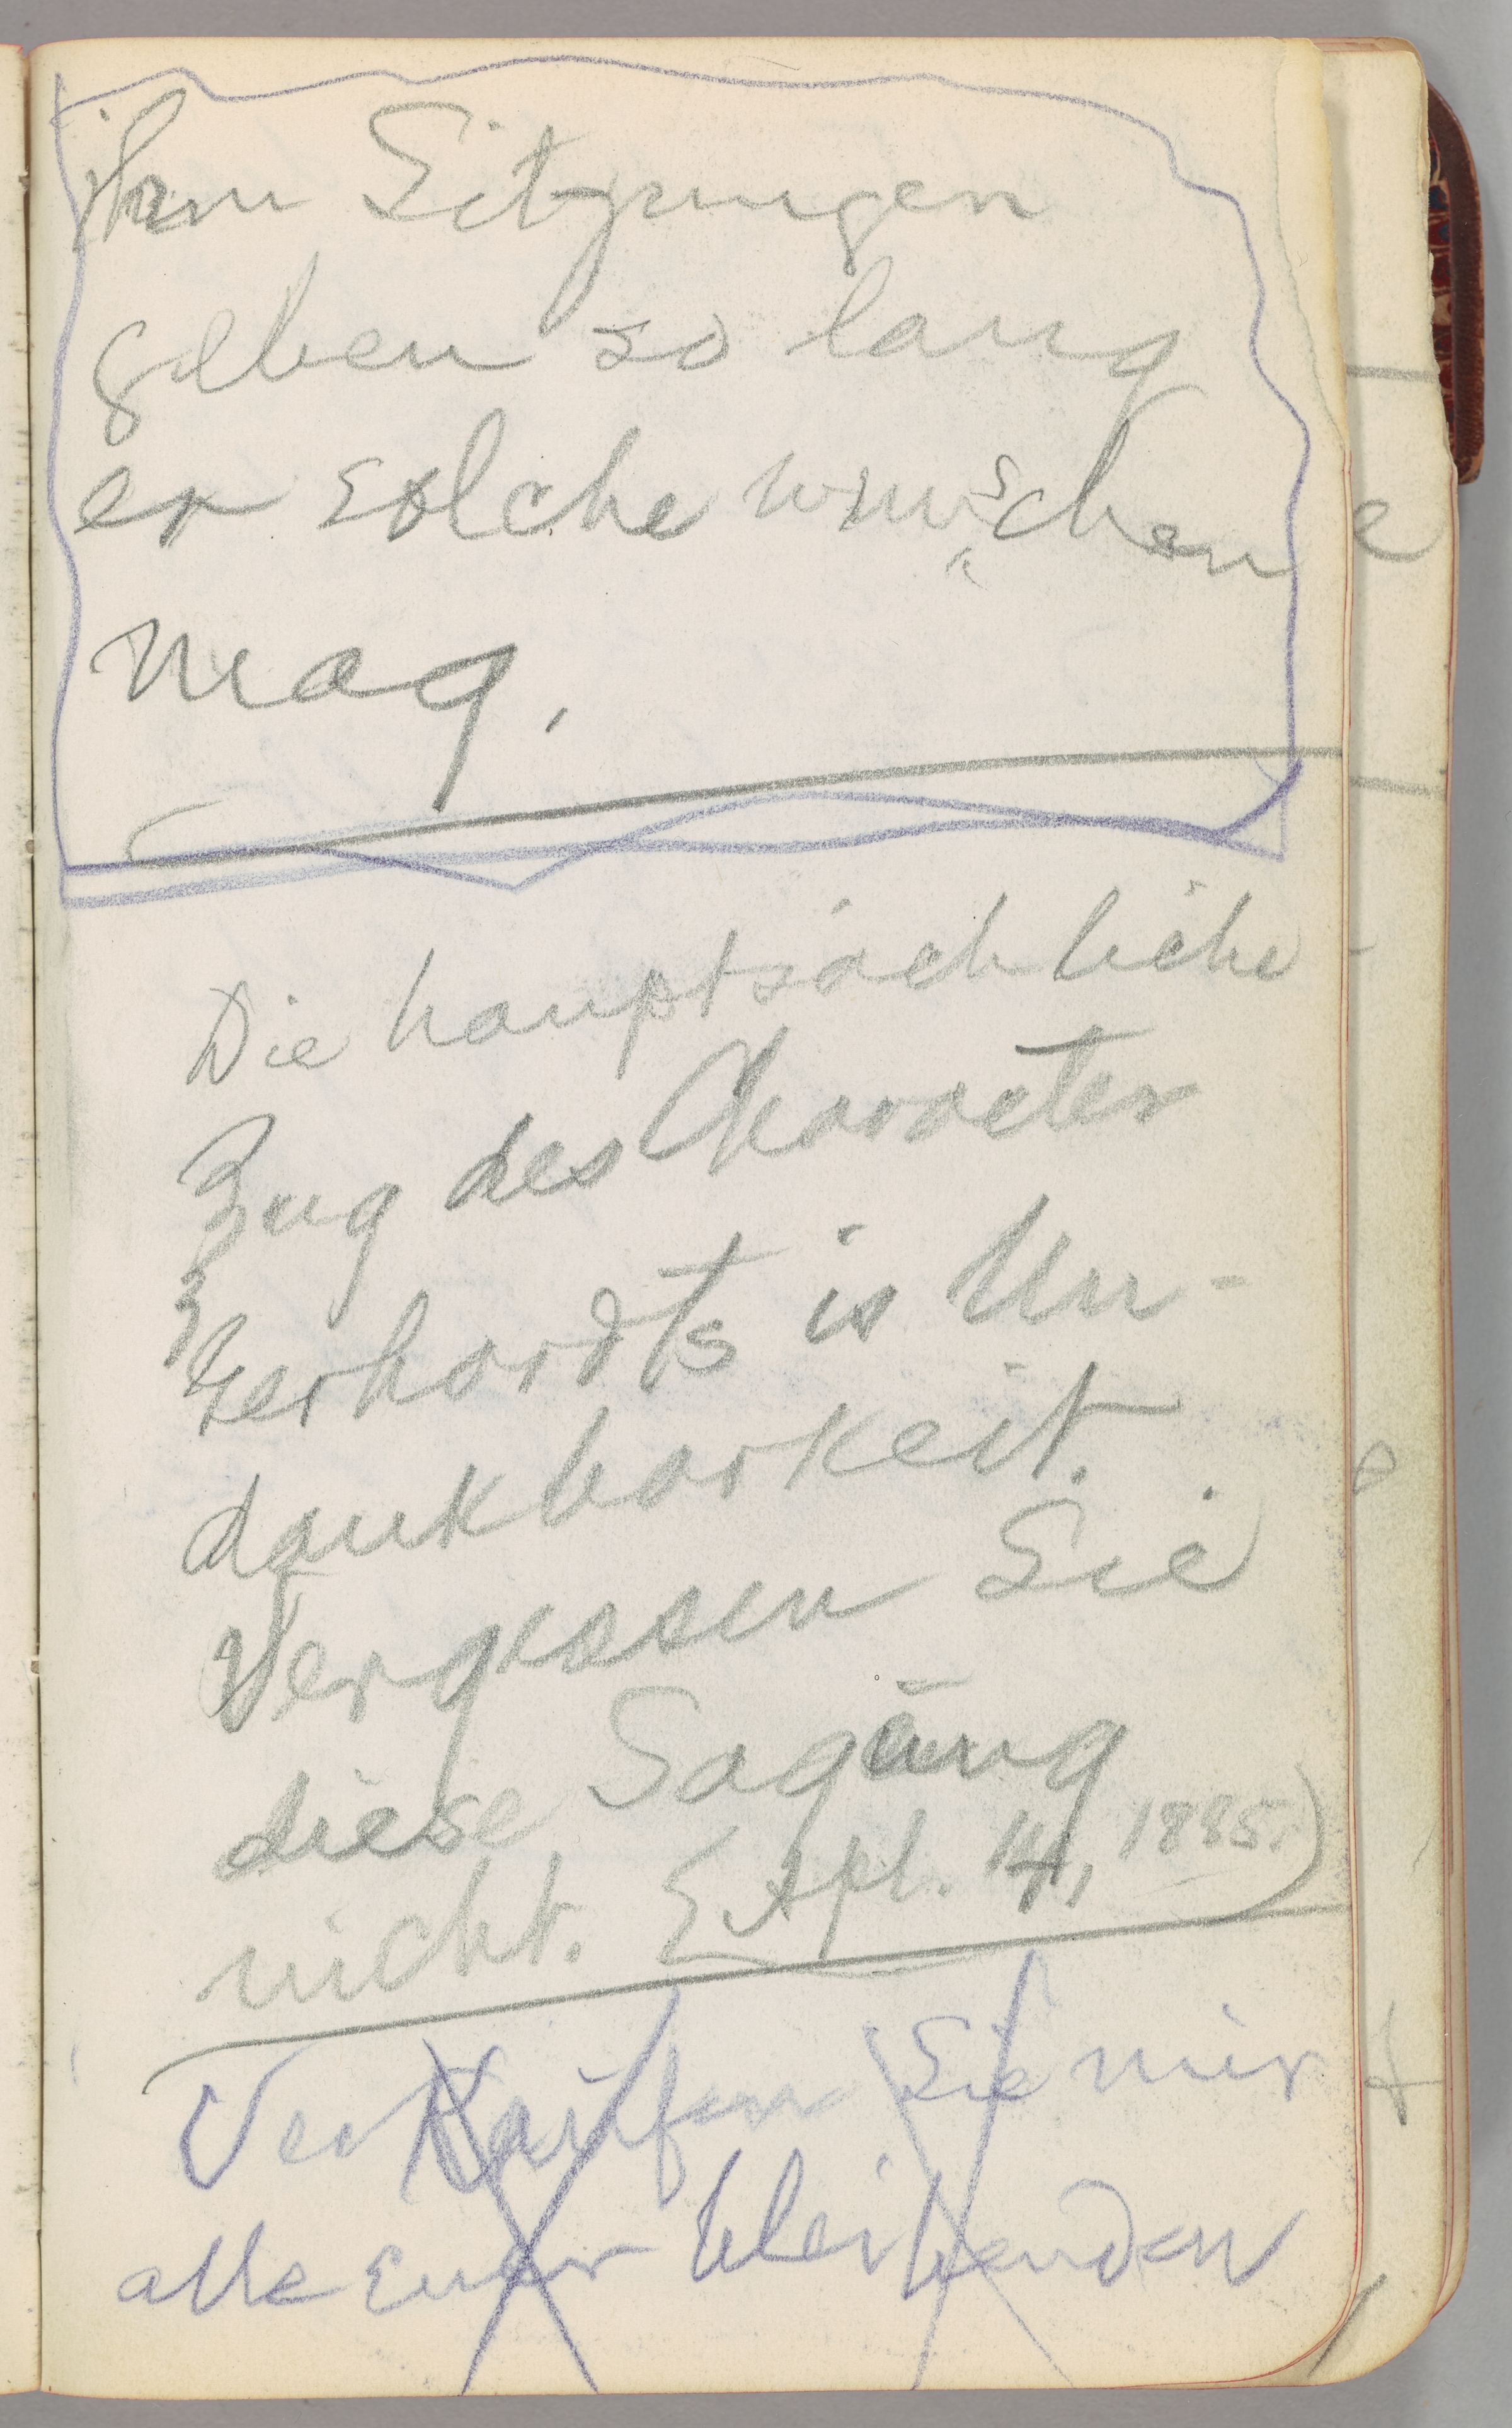 ihm Sitzungen
geben so lang
er solche wunschen
mag.
Die hauptsächliche
Zug des Character
Gerhardts is Un-
dankbarkeit.
Vergessen Sie
diese Sagung
nicht. Apl. 14, 1885.)
Verkaufen Sie mir
alle Euer bleibenden